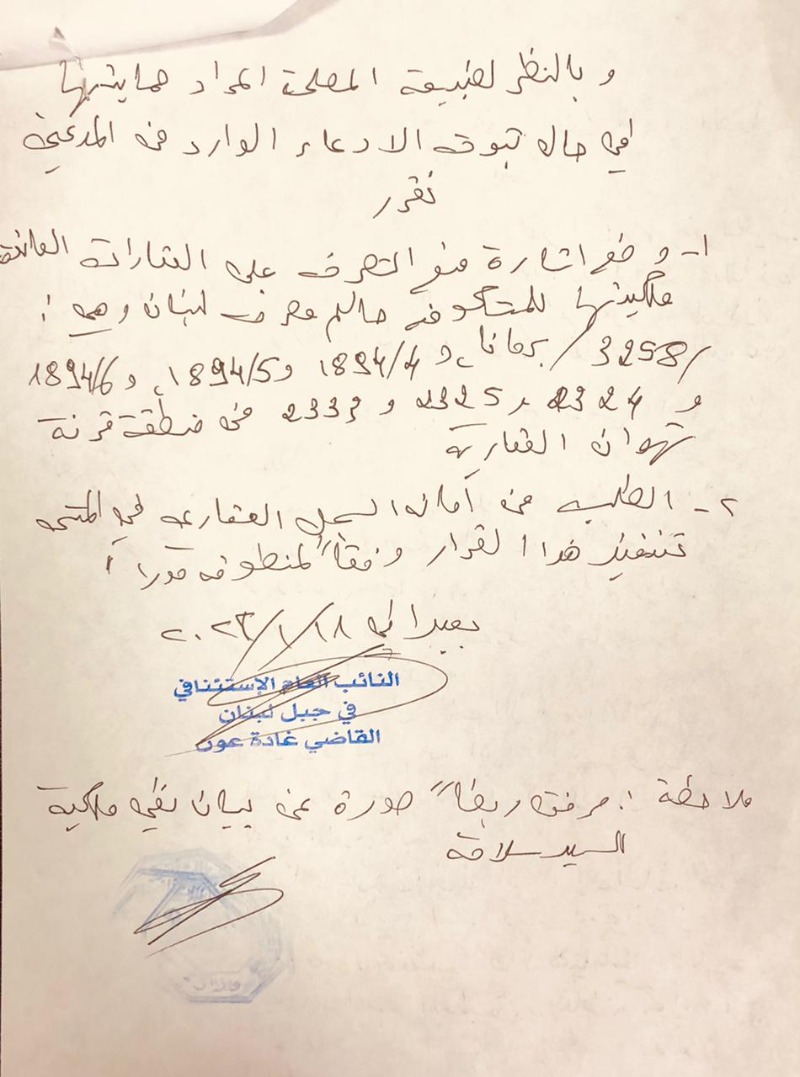 و بالنظر لطبيعة المصلحة المراد حمايتها
في حال ثبوت الادعاء الوارد من المدعين
نقرر
١- وضع اشارة منع التصرف على العقارات العائدة
ملكيتها للمشكو منه حاكم مصرف لبنان وهي :
/3258/ برمانا و 1894/4 و 1894/5، و 1894/6
و 2324 و 2325 و 2333 من منطقة قرنة
شهوان العقارية
٢- الطلب من أمانة السجل العقاري في المتن
تنفيذ هذا القرار وفقاً لمنطوقه فوراً
بعبدا في ٢٠٢٣/١/١٨
النائب العام الإستئنافي
في جبل لبنان
القاضي غادة عون
ملاحظة : مرفق ربطاً صورة عن بيان نفي ملكية
السيد سلامة